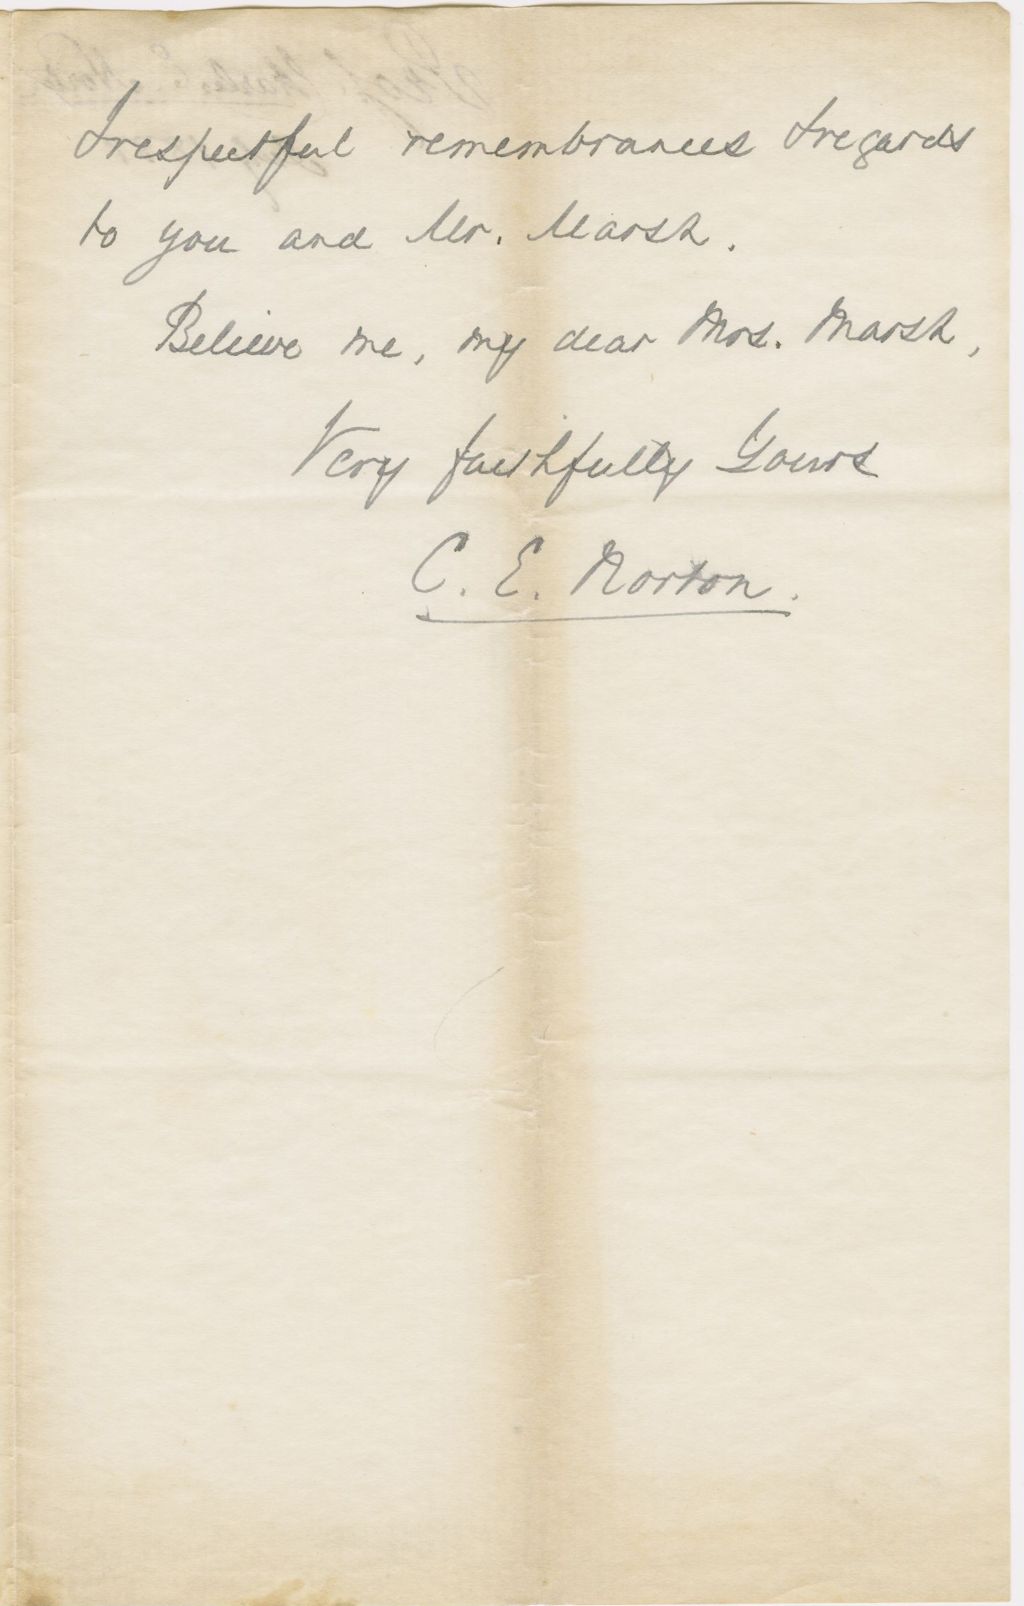 & respectful remembrances & regards
to you and Mr. Marsh.
Believe me, my dear Mrs. Marsh,
Very faithfully Yours
C. E. Norton.